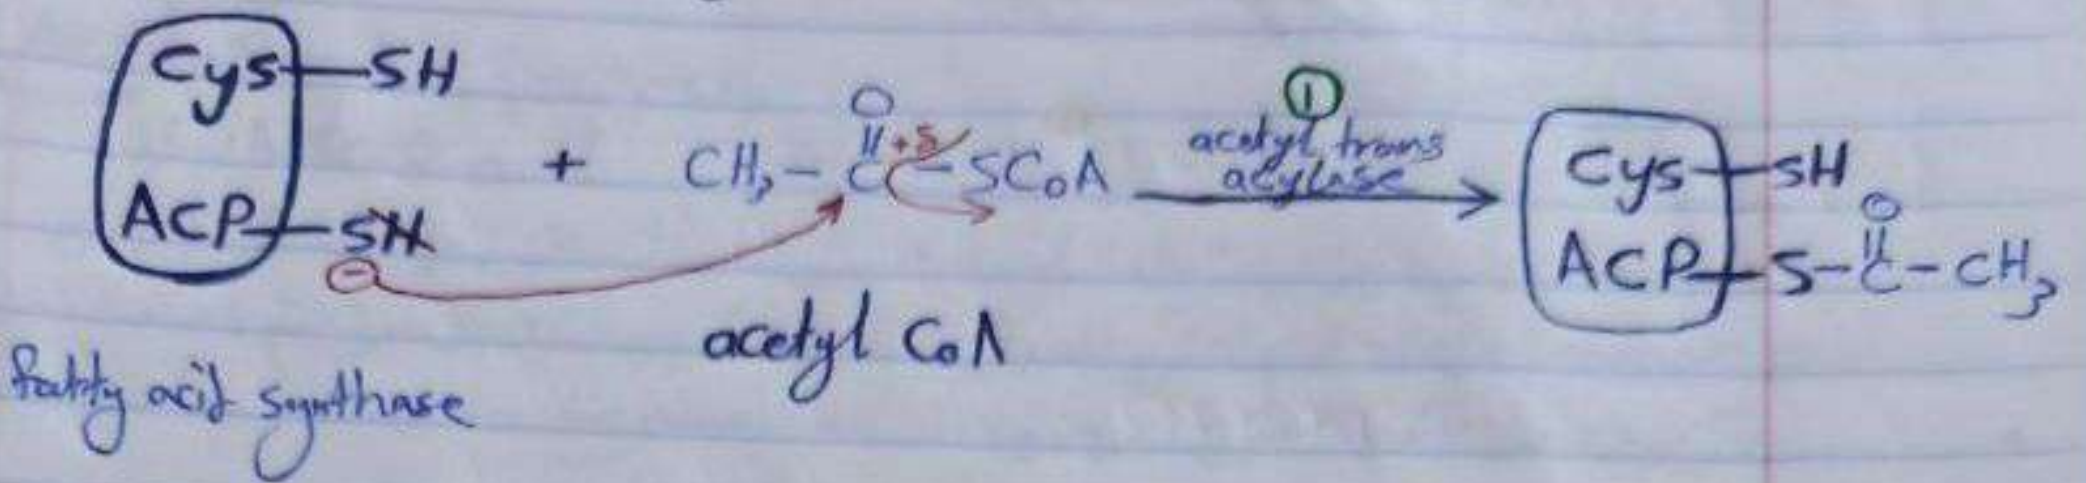 Cys—SH
ACP—SH
⊖
fatty acid synthase
+
O
CH₃–C–SCoA
+δ
acetyl CoA
①
acetyl trans
acylase
Cys—SH
O
ACP—S–C–CH₃